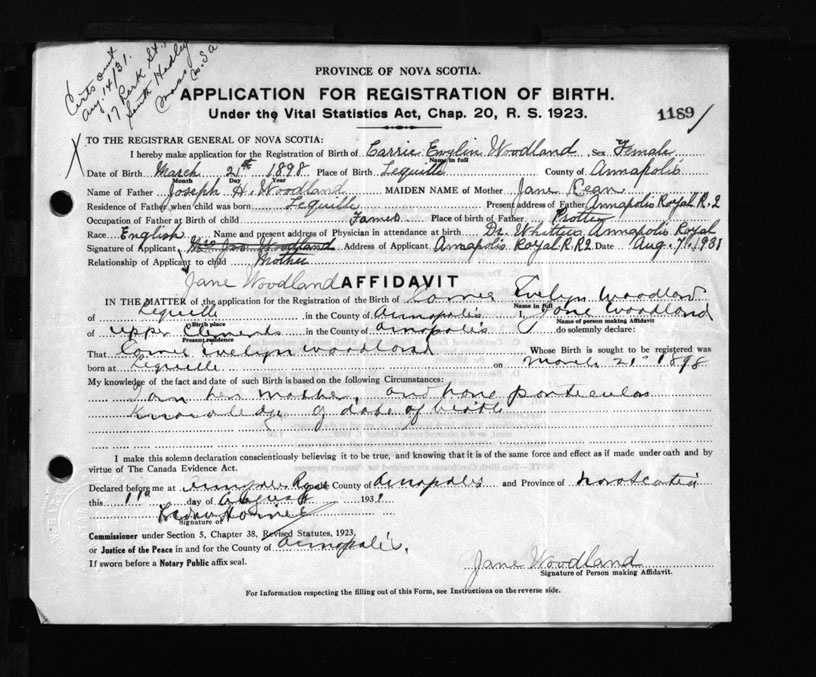 Certs out
Aug 14/31.
17 Park St.
South Hadley
Mass
PROVINCE OF NOVA SCOTIA.
APPLICATION FOR REGISTRATION OF BIRTH.
Under the Vital Statistics Act, Chap. 20, R. S. 1923.
1189
X
TO THE REGISTRAR GENERAL OF NOVA SCOTIA:
I hereby make application for the Registration of Birth of Carrie Evylin Woodland Sex Female
Name in full
Date of Birth March 21st 1898 Place of Birth Lequille County of Annapolis
Month Day Year
Name of Father Joseph H. Woodland MAIDEN NAME of Mother Jane
Residence of Father when child was born Lequille Present address of Father Annapolis Royal R. 2
Occupation of Father at Birth of child Place of birth of Father
Race English Name and present address of Physician in attendance at birth Dr. Annapolis Royal
Signature of Applicant Mrs Jos Woodland Address of Applicant Annapolis Royal R.R2 Date Aug. 7, 1931
Relationship of Applicant to child Mother
Jane Woodland AFFIDAVIT
IN THE MATTER of the application for the Registration of the Birth of Carrie Evelyn Woodland
Name in full
of Lequille in the County of Annapolis I, Jane Woodland
Birth place Name of person making Affidavit
of Upper Clements in the County of Annapolis do solemnly declare:
Present residence
That Carrie Evelyn Woodland Whose Birth is sought to be registered was
born at Lequille on March 21st 1898
My knowledge of the fact and date of such Birth is based on the following Circumstances:
I am her mother, and have particular
knowledge of date of birth
I make this solemn declaration conscientiously believing it to be true, and knowing that it is of the same force and effect as if made under oath and by
virtue of The Canada Evidence Act.
Declared before me at Annapolis Royal County of Annapolis and Province of Nova Scotia
this 11th day of August 1931
Signature of
Commissioner under Section 5, Chapter 38, Revised Statutes, 1923,
or Justice of the Peace in and for the County of Annapolis.
If sworn before a Notary Public affix seal.
Jane Woodland
Signature of Person making Affidavit.
For Information respecting the filling out of this Form, see Instructions on the reverse side.